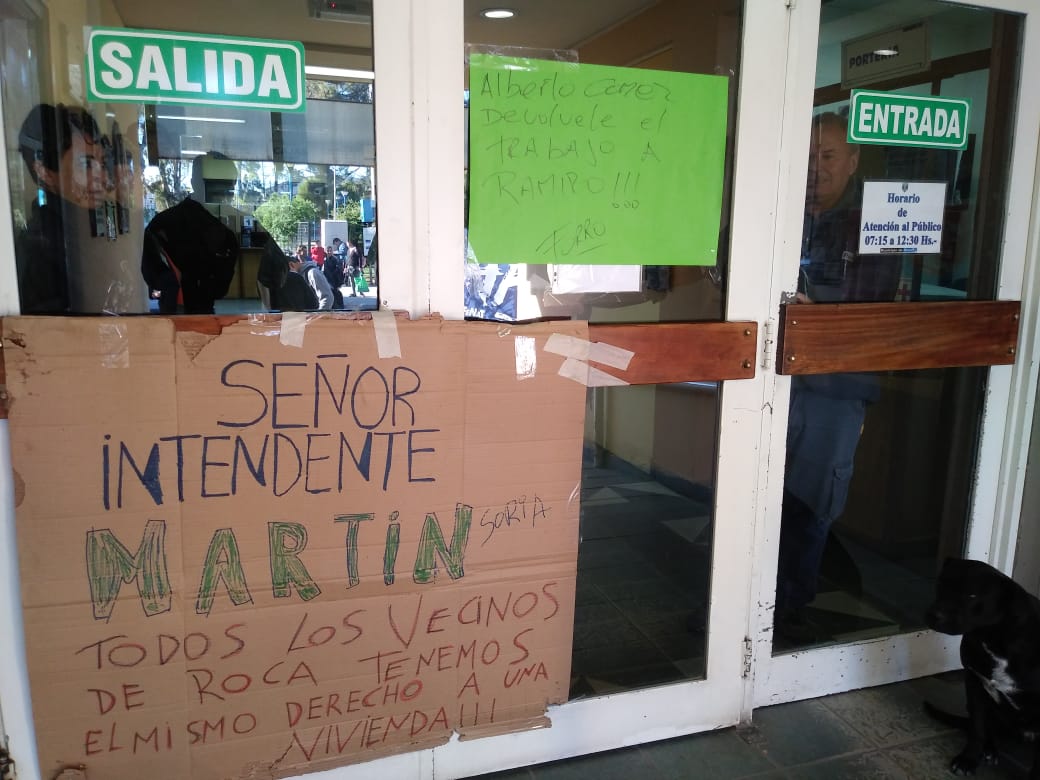 SALIDA
Alberto Gomez
Devolvele el
TRABAJO A
RAMIRO!!!
FURRO
PORTERÍA
ENTRADA
Horario
de
Atención al Público
07:15 a 12:30 Hs.-
SEÑOR
INTENDENTE
MARTIN SORIA
TODOS LOS VECINOS
DE ROCA TENEMOS
EL MISMO DERECHO A UNA
VIVIENDA!!!